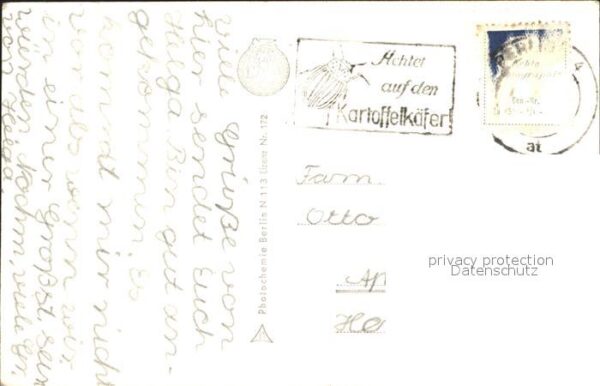 viele Grüße von
hier sendet Euch
Helga Bin gut an-
gekommen. Es
kommt mir nicht
vor als wenn wir
in einer Großst. sein
würden. Nochm. viele Gr.
von Helga
Photochemie Berlin N 113 Lizenz Nr. 172
Achtet
auf den
Kartoffelkäfer!
at
Fam.
Otto
privacy protection
Datenschutz